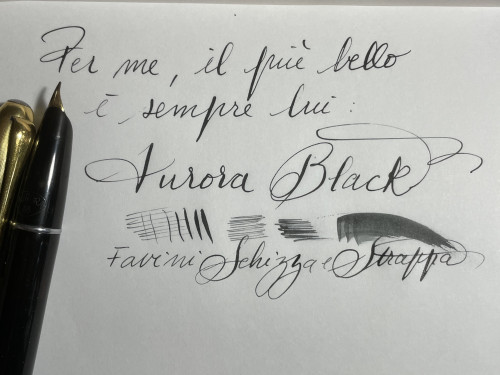 Per me, il più bello
è, sempre lui:
Aurora Black
Favini Schizza e Strappa